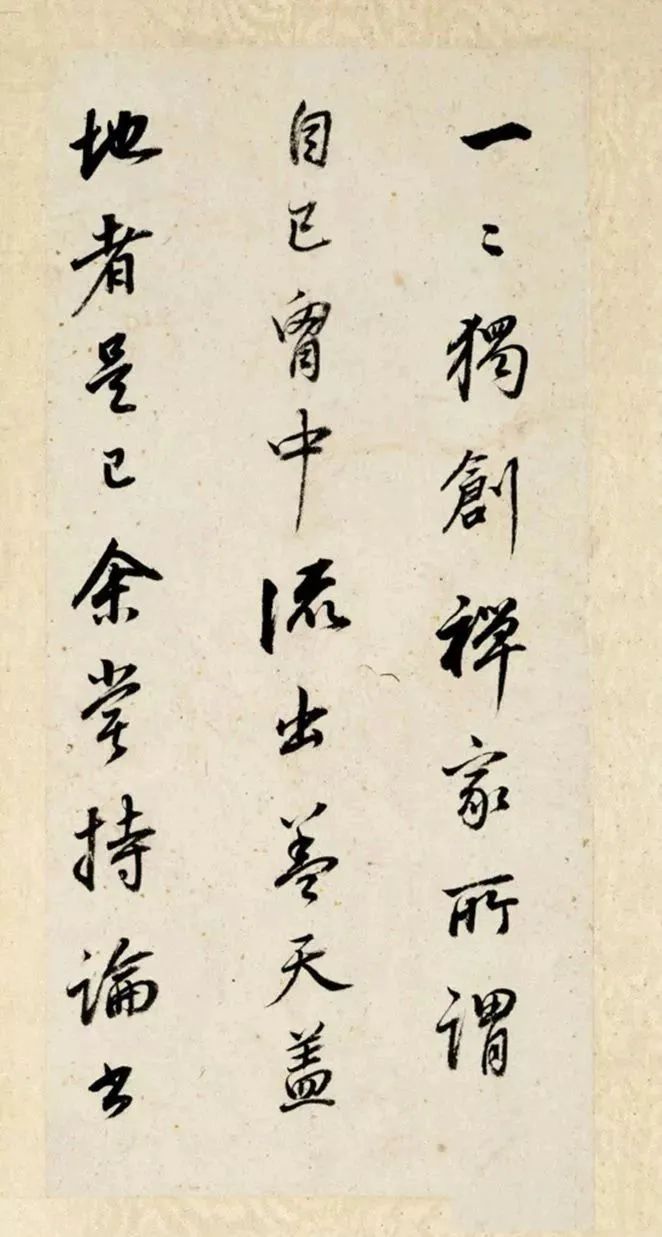 一二獨創禪家所謂
自己胷中流出葢天蓋
地者是已余嘗持論書